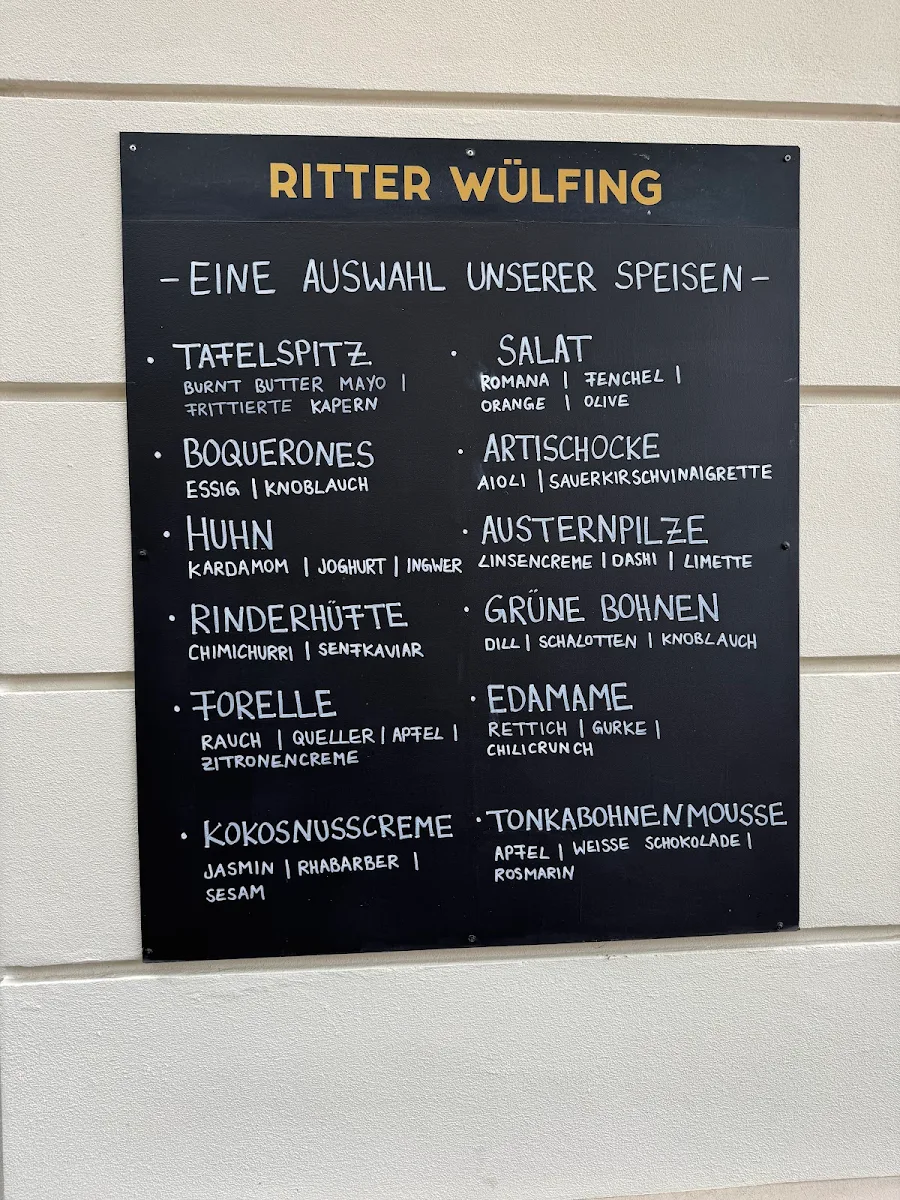 RITTER WÜLFING
- EINE AUSWAHL UNSERER SPEISEN -
• TAFELSPITZ
BURNT BUTTER MAYO |
FRITTIERTE KAPERN
• BOQUERONES
ESSIG | KNOBLAUCH
• HUHN
KARDAMOM | JOGHURT | INGWER
• RINDERHÜFTE
CHIMICHURRI | SENFKAVIAR
• FORELLE
RAUCH | QUELLER | APFEL |
ZITRONENCREME
• KOKOSNUSSCREME
JASMIN | RHABARBER |
SESAM
• SALAT
ROMANA | FENCHEL |
ORANGE | OLIVE
• ARTISCHOCKE
AIOLI | SAUERKIRSCHVINAIGRETTE
• AUSTERNPILZE
LINSENCREME | DASHI | LIMETTE
• GRÜNE BOHNEN
DILL | SCHALOTTEN | KNOBLAUCH
• EDAMAME
RETTICH | GURKE |
CHILICRUNCH
• TONKABOHNENMOUSSE
APFEL | WEISSE SCHOKOLADE |
ROSMARIN